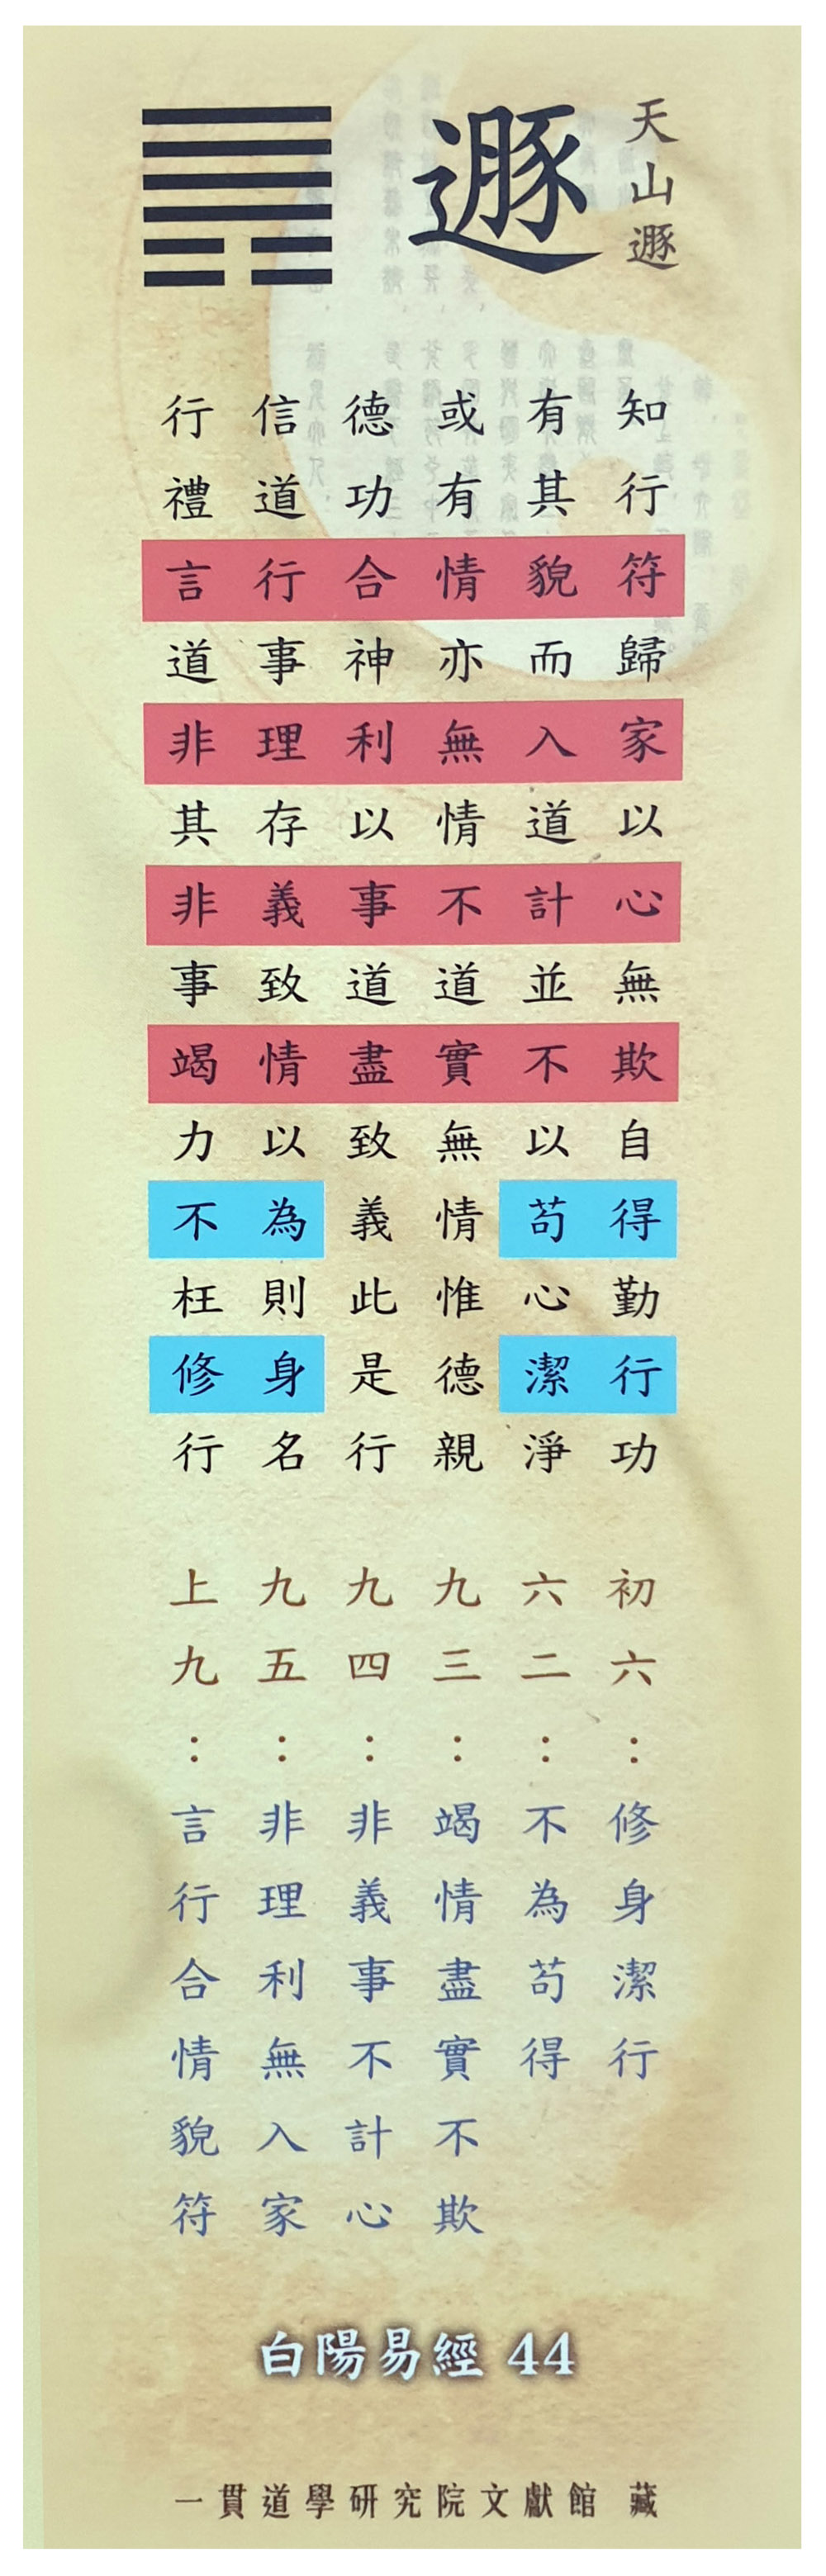 天山遯
遯
知行符歸家以心無欺自得勤行功
有其貌而入道計並不以苟心潔淨
或有情亦無情不道實無情惟德親
德功合神利以事道盡致義此是行
信道行事理存義致情以為則身名
行禮言道非其非事竭力不枉修行
初六：修身潔行
六二：不為苟得
九三：竭情盡實不欺
九四：非義事不計心
九五：非理利無入家
上九：言行合情貌符
白陽易經 44
一貫道學研究院文獻館 藏